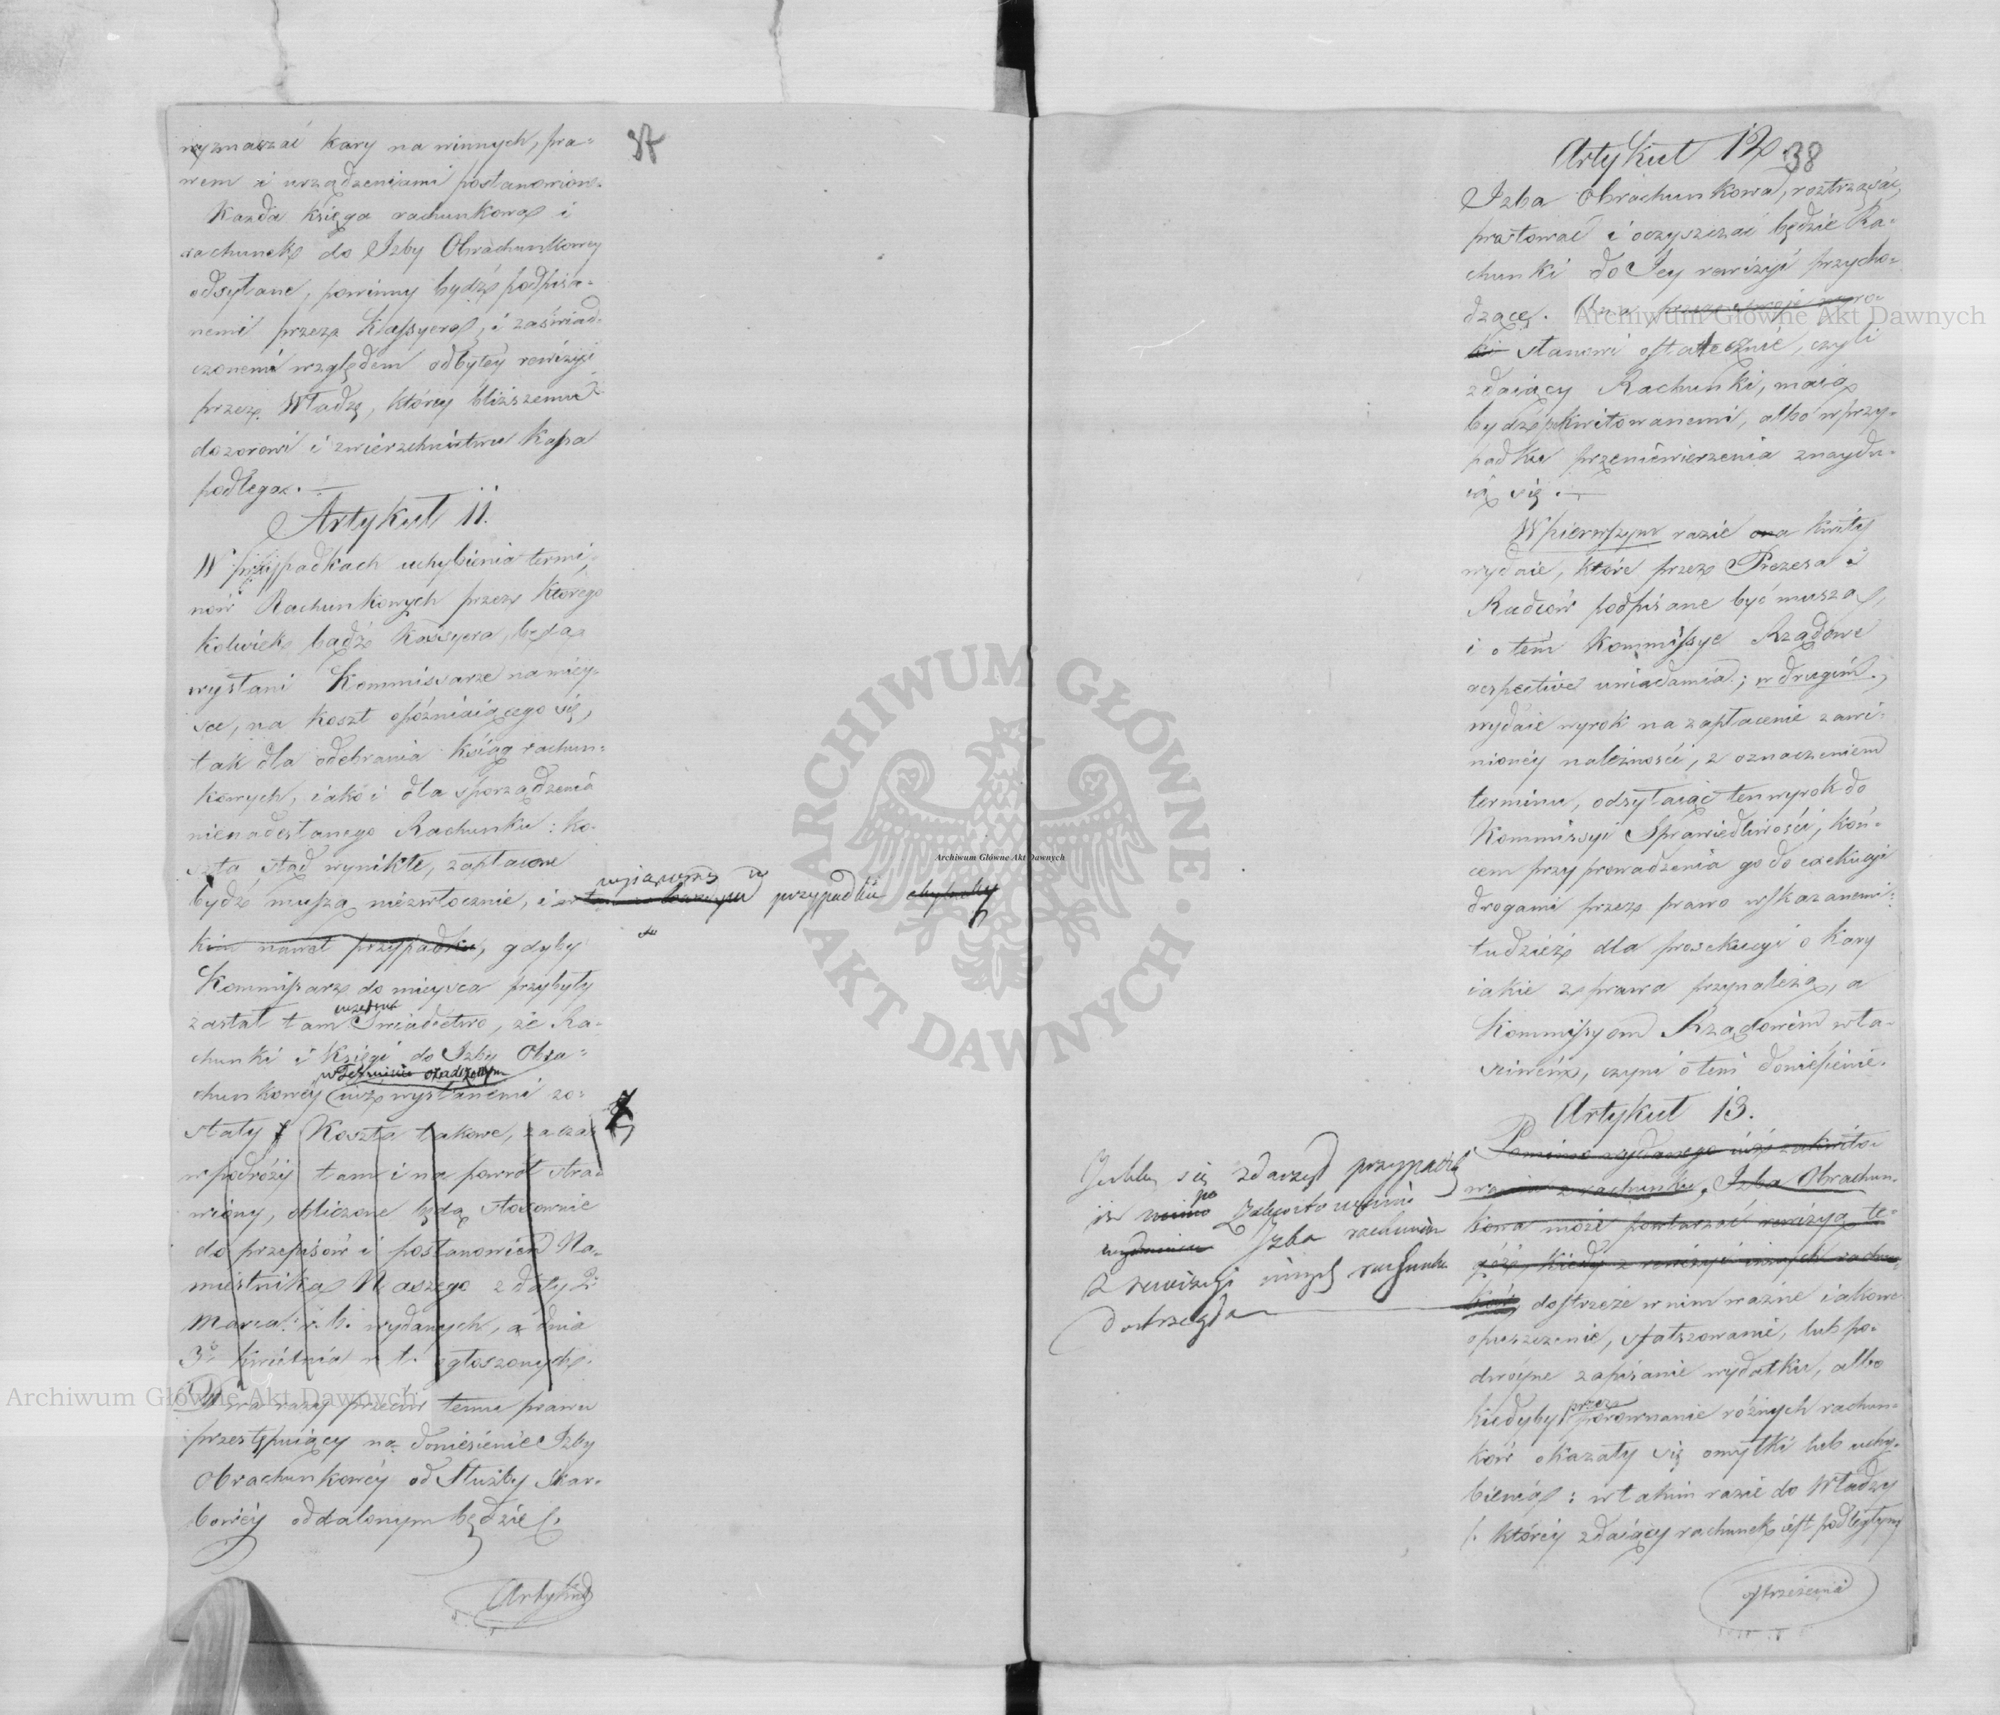 37
wyznaczać kary na winnych, pra-
wem i urządzeniami postanowione.
Każda księga rachunkowa i
rachunek do Izby Obrachunkowey
odsyłane, powinny bydź podpisa-
nemi przez Kassyera, i zaświad-
czonemi względem odbytey rewizyi
przez Władzę, którey bliższemu
dozorowi i zwierzchnictwu Kassa
podlega.
Artykuł 11.
W przypadkach uchybienia termi-
nów Rachunkowych przez którego
kolwiek bądź Kassyera, będą
wysłani Kommissarze na miey-
sce, na koszt opóźniaiącego się,
tak dla odebrania ksiąg rachun-
kowych, iako i dla sporządzenia
nienadesłanego Rachunku: ko-
szta stąd wynikłe, zapłacone
wyiąwszy w
bydź muszą niezwłocznie, i w przypadku
kim nawet przypadku, gdyby
Kommissarz do mieysca przybyły
zastał tam Świadectwo, że Ra-
chunki i Księgi do Izby Obra-
w terminie
chunkowey iuż wysłanemi zo-
stały. Koszta takowe, za czas
w podróży tam i na powrót stra-
wiony, obliczone będą stosownie
do przepisów i postanowień Na-
miestnika Naszego z daty 2.
Marca r. b. wydanych, a dnia
3. kwietnia r. b. ogłoszonych.
Dwa razy przeciw temu prawu
przestępuiący na doniesienie Izby
Obrachunkowey od Służby Skar-
bowey oddalonym będzie.
Artykuł
Artykuł 12
38
Izba Obrachunkowa, roztrząsać,
prostować i oczyszczać będzie Ra-
chunki do Jey rewizyi przycho-
dzące. Ona wyro-
ki stanowi ostatecznie, czyli
zdaiący Rachunki, maią
bydź pokwitowanemi, albo w przy-
padku przeniewierzenia znaydu-
ią się.
W pierwszym razie ona kwity
wydaie, które przez Prezesa i
Radców podpisane być muszą,
i o tém Kommissye Rządowe
respective uwiadamia; w drugim,
wydaie wyrok na zapłacenie zawi-
nioney należności, z oznaczeniem
terminu, odsyłaiąc ten wyrok do
Kommissyi Sprawiedliwości, koń-
cem przyprowadzenia go do exekucyi
drogami przez prawo wskazanemi:
tudzież dla prosekucyi o kary
iakie z prawa przynależą, a
Kommissyom Rządowém wła-
ściwém, czyni o tém doniesienie.
Artykuł 13.
Pomimo wydanego iuż zakwito-
wania z rachunku, Izba Obrachun-
kowa może powtarzać rewizyą te-
goż, kiedy z rewizyi innych rachun-
ków dostrzeże w nim ważne iakowe
opuszczenie, sfałszowanie, lub po-
dwóyne zapisanie wydatku, albo
przez
kiedyby porównanie różnych rachun-
ków okazały się omyłki lub uchy-
bienia: w takim razie do Władzy
którey zdaiący rachunek iest podległym
ostrzeżenia
się zdarzył przypadek
iż po zakwitowaniu
Izba
z rewizyi innych rachunków
dostrzegła
Archiwum Główne Akt Dawnych
Archiwum Główne Akt Dawnych
Archiwum Główne Akt Dawnych
ARCHIWUM GŁÓWNE AKT DAWNYCH